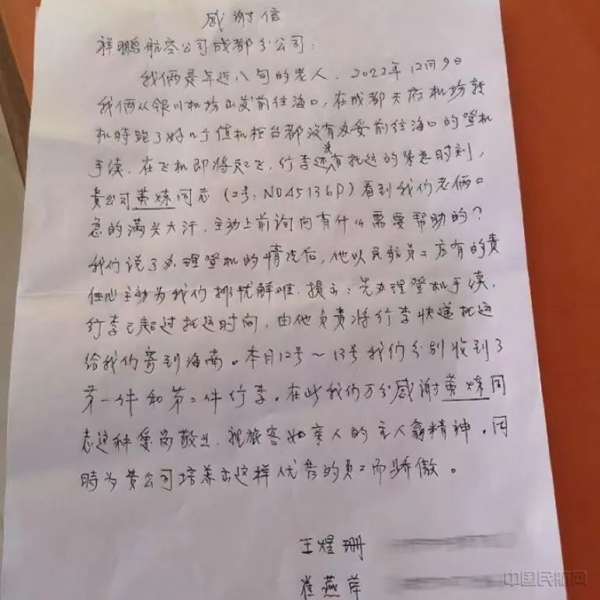 感谢信
祥鹏航空公司成都分公司:
我俩是年近八旬的老人,2022年12月9日
我俩从银川机场出发前往海口,在成都天府机场转
机时跑了好几个值机柜台都没有办妥前往海口的登机
手续,在飞机即将起飞,行李还没有托运的紧急时刻,
贵公司黄炼同志(工号:NO45136P)看到我们老俩口
急的满头大汗,主动上前询问有什么需要帮助的?
我们说了办理登机的情况后,他以民航员工应有的责
任心主动为我们排忧解难,提示:先办理登机手续,
行李已超过托运时间,由他负责将行李快递托运
给我们寄到海南。本月12号~13号我们分别收到了
第一件和第二件行李。在此我们万分感谢黄炼同
志这种爱岗敬业、视旅客如亲人的主人翁精神。同
時为贵公司培养出这样优秀的员工而骄傲。
王煜珊
崔燕萍
中国民航网